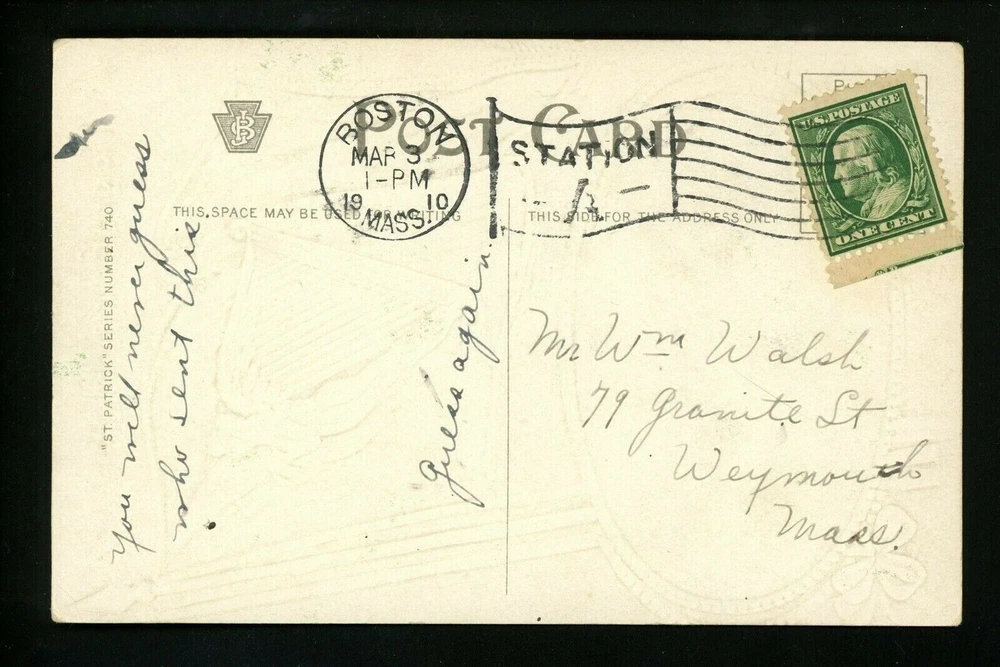 POST CARD
BOSTON
MAR 3
1-PM
19 10
MASS.
STATION
A
U.S. POSTAGE
ONE CENT
THIS SPACE MAY BE USED FOR WRITING
THIS SIDE FOR THE ADDRESS ONLY
"ST. PATRICK" SERIES NUMBER 740
You will never guess
who sent this
guess again.
Mr Wm Walsh
79 Granite St
Weymouth
Mass.